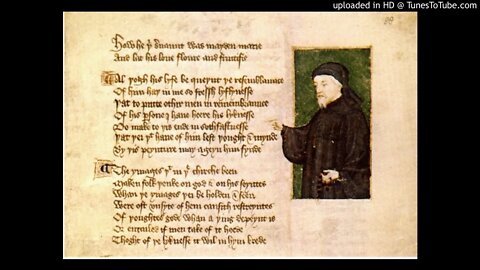 uploaded in HD @ TunesToTube.com
88
How he þi seruaunt was mayden marie
And lat his loue floure and fructifie
Al þogh his lyfe be queynt þe resemblaunce
Of him haþ in me so fressh lyflynesse
Þat to putte othir men in remembraunce
Of his persone I haue heere his lyknesse
Do make to þis ende in sothfastnesse
Þat þei þt haue of him lest þought & mynde
By þis peynture may ageyn him fynde
The ymages þt in þe chirche been
Maken folk þenke on god & on his seyntes
Whan þe ymages þei be holden & seen
Were oft vnsyte of hem causith restreyntes
Of þoughtes gode whan a þing depeynt is
Or entailed if men take of it heede
Thoght of þe lyknesse it wil in hym brede